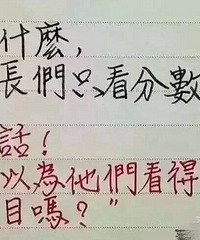 什麼,
長們只看分數
話!
以為他們看得
目嗎?"